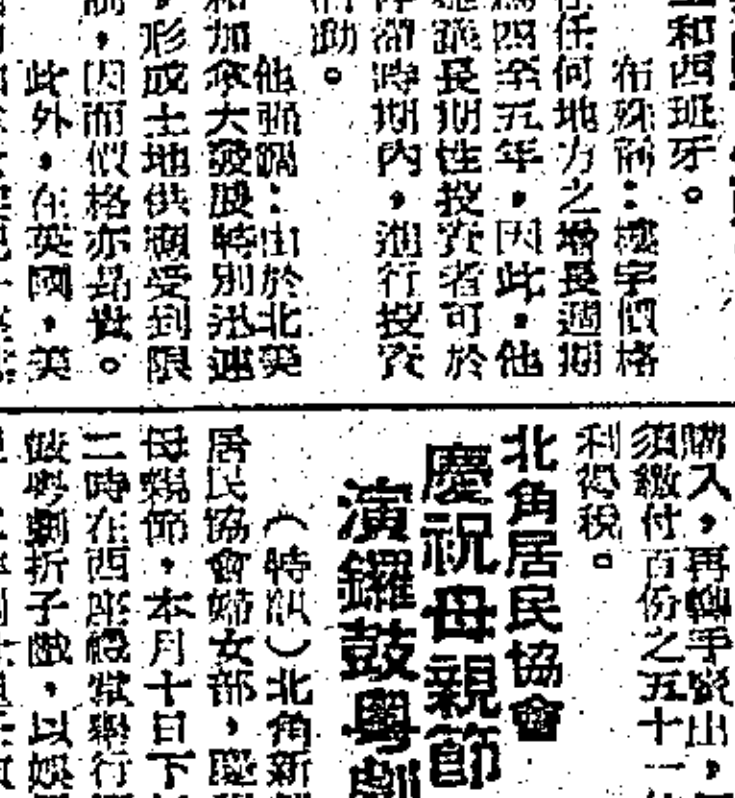 和西班牙。
布殊稱：樓宇價格
任何地方之增長週期
四至五年，因此，他
長期性投資者可於
時期內，進行投資
他強調：由於北美
和加拿大發展特別迅速
，形成土地供應受到限
，因而價格亦昂貴。
此外，在英國，美
購入，再轉手賣出，
須繳付百份之五十一
利得稅。
北角居民協會
慶祝母親節
演鑼鼓粵劇
（特訊）北角新
居民協會婦女部，慶
母親節，本月十日下
二時在西座禮堂舉行
粵劇折子戲，以娛